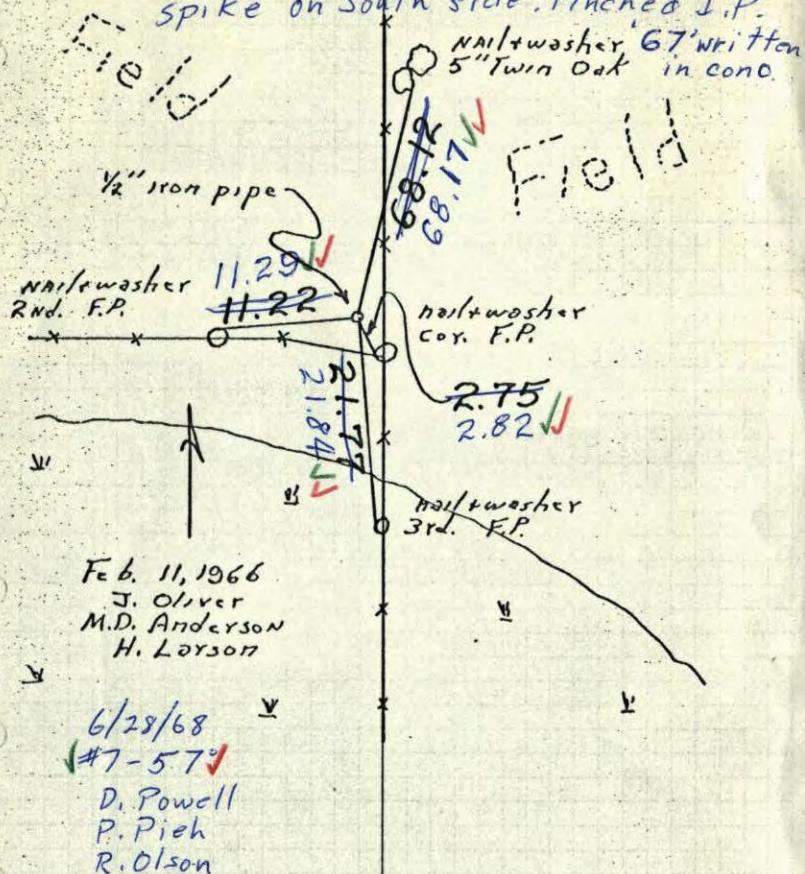 spike on South side. Pinched I.P.
Field
Nail+washer '67' written
5" Twin Oak in conc.
68.12
68.17
Field
1/2" iron pipe
11.29
11.22
Nail+washer
2nd. F.P.
nail+washer
cor. F.P.
2.75
2.82
21.77
21.84
nail+washer
3rd. F.P.
Feb. 11, 1966
J. Oliver
M.D. Anderson
H. Larson
6/28/68
#7-57°
D. Powell
P. Pieh
R. Olson